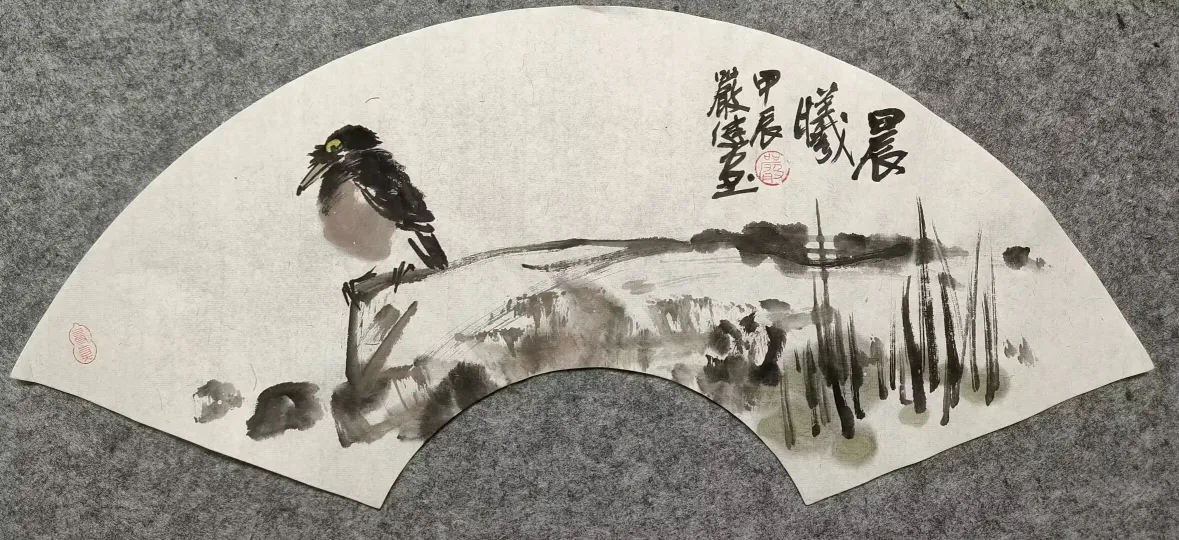 晨曦
甲辰
嚴
畫